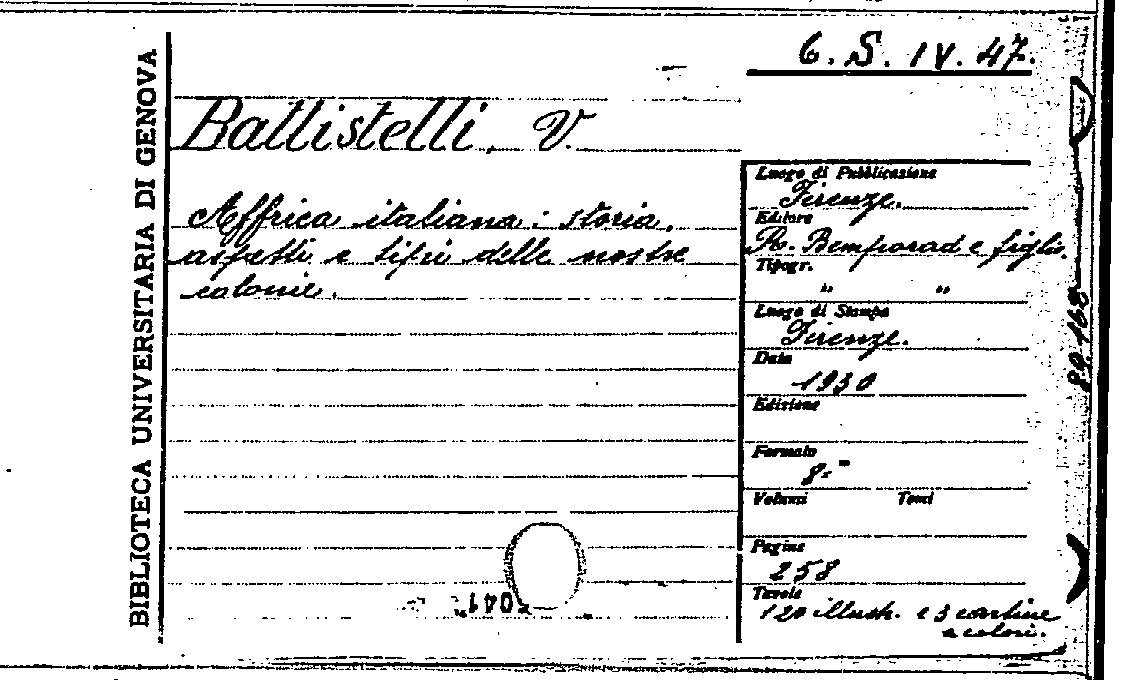 BIBLIOTECA UNIVERSITARIA DI GENOVA
6. S. IV. 47.
Battistelli, V.
Affrica italiana: storia,
aspetti e tipi delle nostre
colonie.
Luogo di Pubblicazione
Firenze.
Editore
R. Bemporad e figlio.
Tipogr.
" "
Luogo di Stampa
Firenze.
Data
1930
Edizione
Formato
8°
Volumi Tomi
Pagine
258
Tavole
120 illustr. e 3 cartine
a colori.